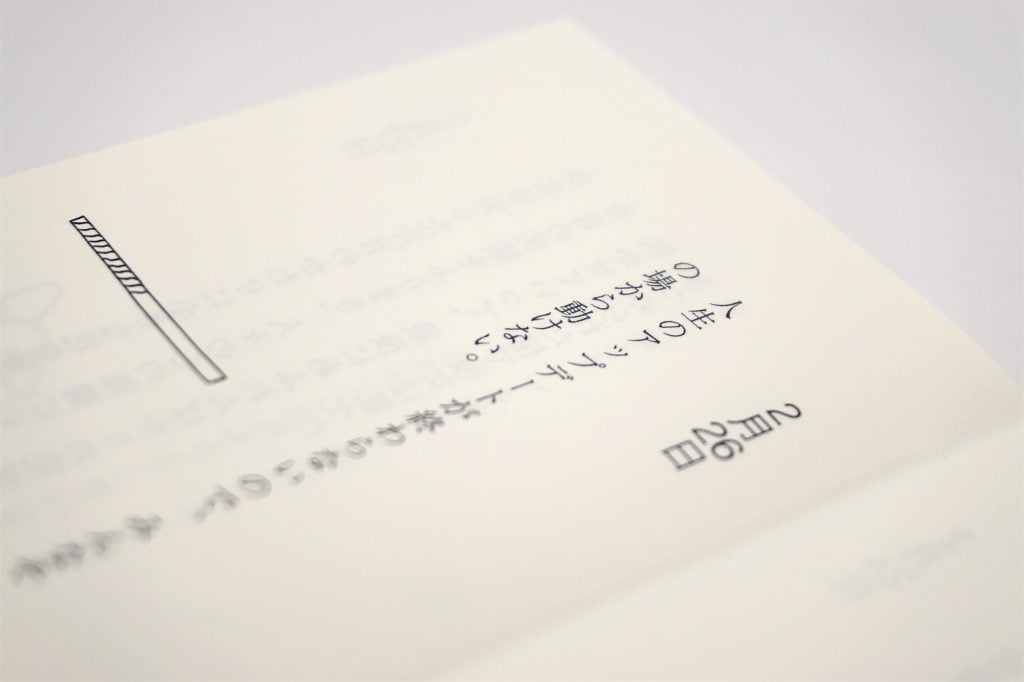 2月26日
人生のアップデートが終わらないので、
の場から動けない。